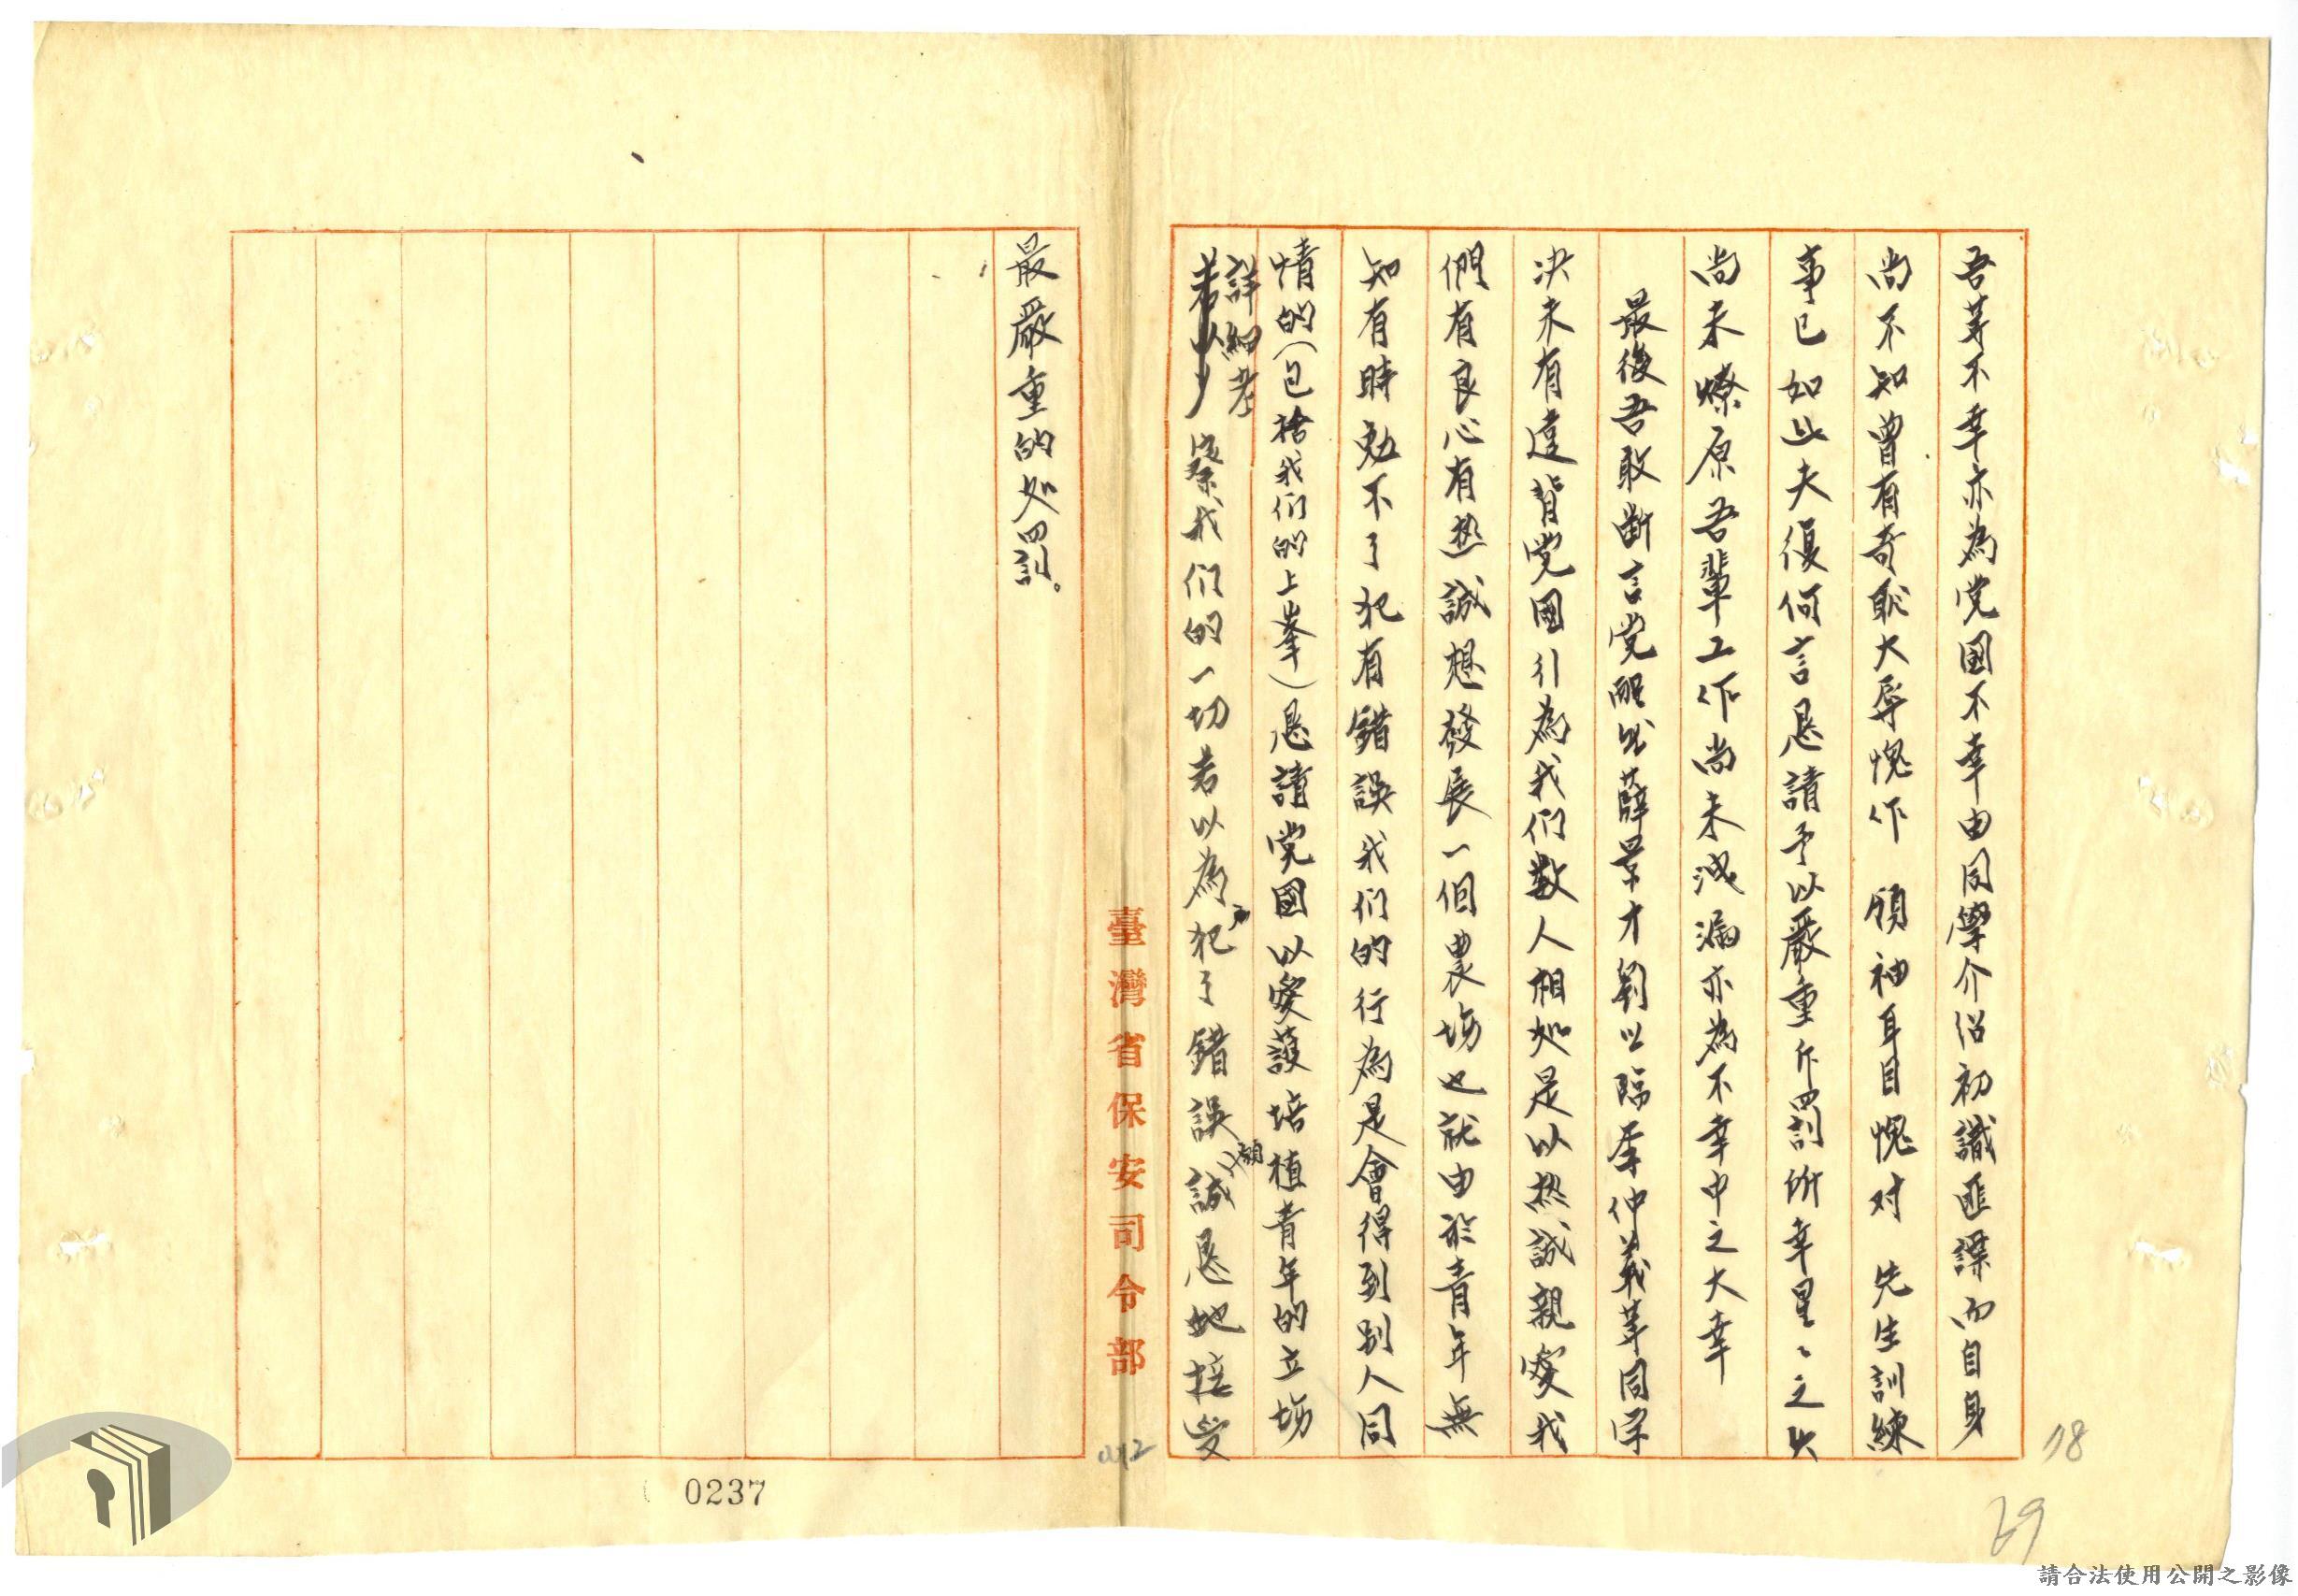 吾等不幸亦為党國不幸由同學介侶初識匪諜而自身
尚不知曾有奇恥大辱愧作 領袖耳目愧对 先生訓練
事已如此夫復何言恳請予以嚴重斥罰所幸星々之火
尚未燎原吾輩工作尚未洩漏亦為不幸中之大幸
最後吾敢断言党 薛景才劉以臨李仲義等同学
決未有違背党國引為我们数人相知是以热誠親愛我
們有良心有热誠想發展一個農場也就由於青年無
知有時免不了犯有錯誤我们的行為是會得到別人同
情的(包括我们的上峯)恳請党國以愛護培植青年的立場
詳細考察我们的一切若以為不犯了錯誤願誠恳地接受
最嚴重的处罰。
臺灣省保安司令部
0237
18
69
請合法使用公開之影像